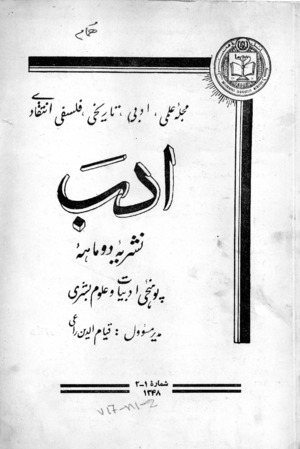 مجلهٔ علمی، ادبی، تاریخی، فلسفی، انتقادی
ادب
نشریهٔ دو ماههٔ
پوهنځی ادبیات و علوم بشری
مدیر مسوول : قیام الدین راعی
شمارهٔ ۱-۲
۱۳۴۸